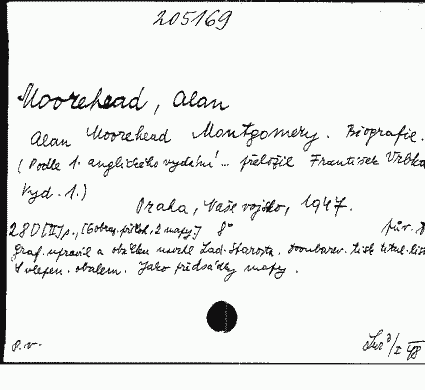 205169
Moorehead, Alan
Alan Moorehead Montgomery. Biografie.
(Podle 1. anglického vydání ... přeložil František Vrbka
Vyd. 1.)
Praha, Naše vojsko, 1947.
280 [II] s., [6 obraz. příloh, 2 mapy] 8° pův. 
Graf. upravil a obálku navrhl Lad. Starosta. Dvoubarev. tisk titul. listu
S vlepen. obalem. Jako předsádky mapy.
p.v.